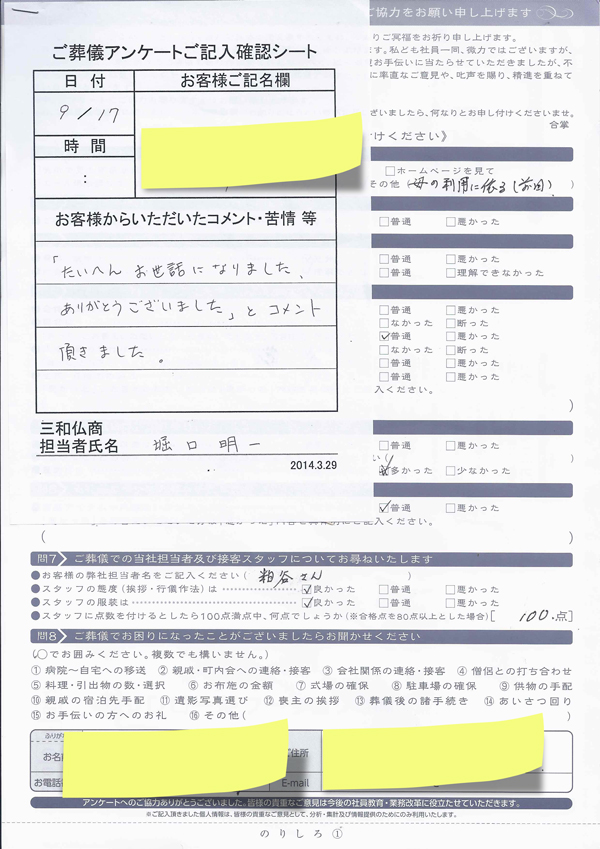 ご協力をお願い申し上げます
ご葬儀アンケートご記入確認シート
日付
お客様ご記名欄
9/17
時間
:
お客様からいただいたコメント・苦情 等
「たいへん お世話になりました、
ありがとうございました」と コメント
頂きました。
三和仏商
担当者氏名 堀口明一
2014.3.29
りご冥福をお祈り申し上げます。
す。私ども社員一同、微力ではございますが、
お手伝いに当たらせていただきましたが、不
に率直なご意見や、叱声を賜り、精進を重ねて
ざいましたら、何なりとお申し付けくださいませ。
合掌
けください》
□ホームページを見て
その他(母の利用に依る(前回))
□普通 □悪かった
□普通 □悪かった
□普通 □理解できなかった
□普通 □悪かった
□なかった □断った
☑普通 □悪かった
□なかった □断った
□普通 □悪かった
□普通 □悪かった
入ください。
)
□普通 □悪かった
)
☑多かった □少なかった
☑普通 □悪かった
記入ください。
( )
問7 ご葬儀での当社担当者及び接客スタッフについてお尋ねいたします
●お客様の弊社担当者名をご記入ください( 粕谷さん )
●スタッフの態度(挨拶・行儀作法)は ☑良かった □普通 □悪かった
●スタッフの服装は ☑良かった □普通 □悪かった
●スタッフに点数を付けるとしたら100点満点中、何点でしょうか(※合格点を80点以上とした場合)[ 100.点]
問8 ご葬儀でお困りになったことがございましたらお聞かせください
(○でお囲みください。複数でも構いません。)
①病院〜自宅への移送 ②親戚・町内会への連絡・接客 ③会社関係の連絡・接客 ④僧侶との打ち合わせ
⑤料理・引出物の数・選択 ⑥お布施の金額 ⑦式場の確保 ⑧駐車場の確保 ⑨供物の手配
⑩親戚の宿泊先手配 ⑪遺影写真選び ⑫喪主の挨拶 ⑬葬儀後の諸手続き ⑭あいさつ回り
⑮お手伝いの方へのお礼 ⑯その他( )
ふりが
お名
ご住所
お電話
E-mail
アンケートへのご協力ありがとうございました。皆様の貴重なご意見は今後の社員教育・業務改革に役立たせていただきます。
※ご記入頂きました個人情報は、皆様の貴重なご意見として、分析・集計及び情報提供のためにのみ利用いたします。
のりしろ①